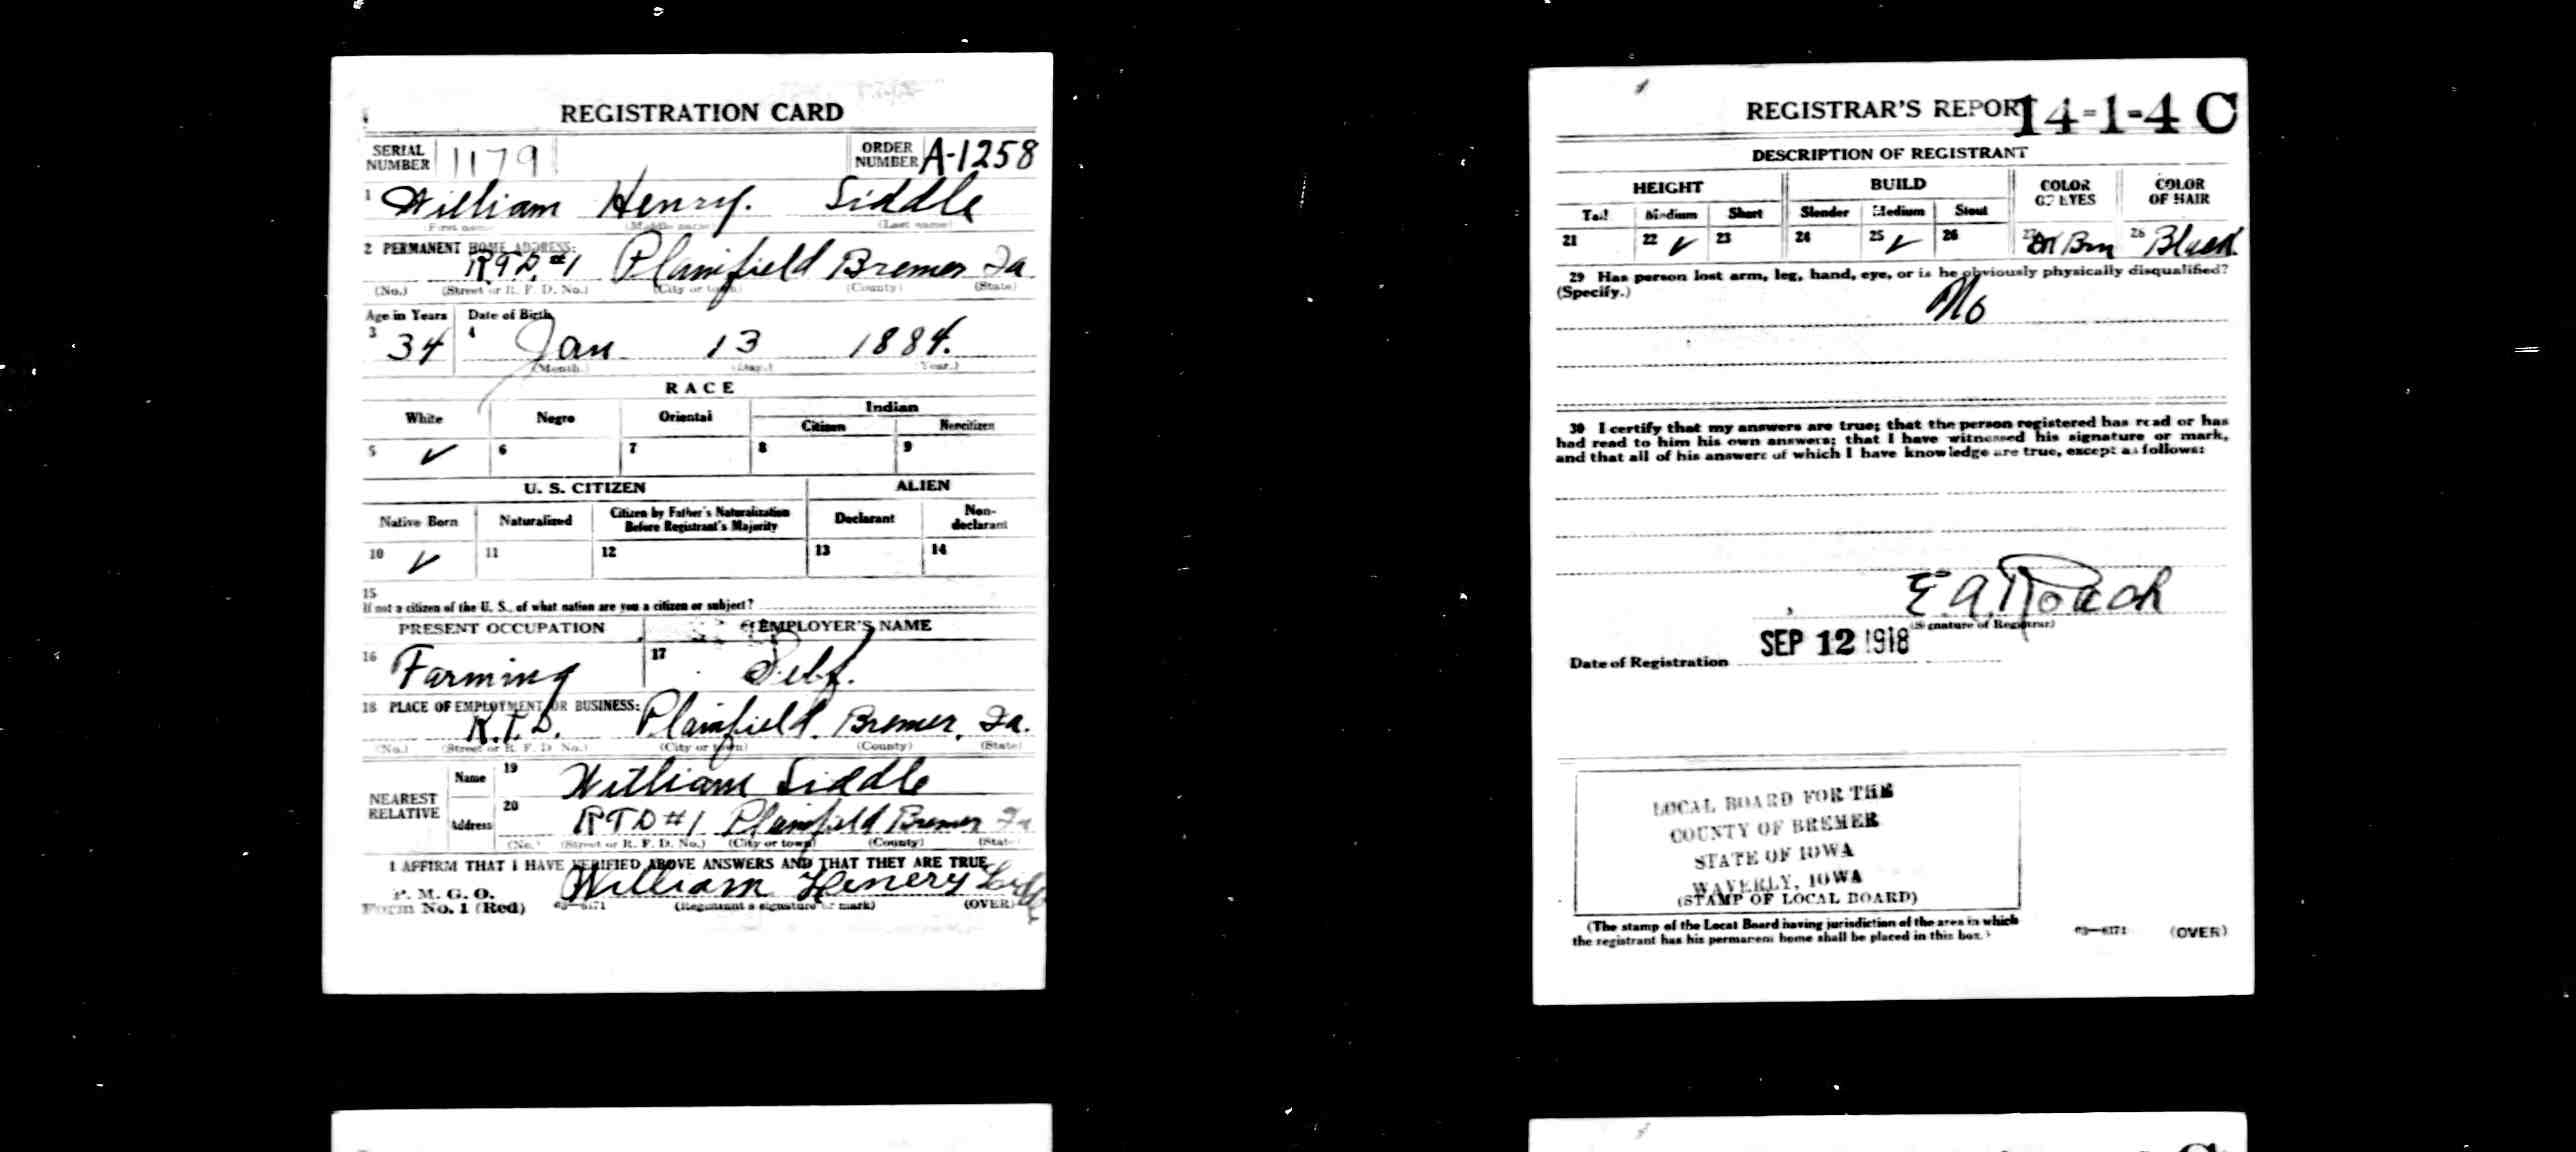 REGISTRATION CARD
SERIAL NUMBER 1179 ORDER NUMBER A-1258
1 William Henry. Siddle
(First name) (Middle name) (Last name)
2 PERMANENT HOME ADDRESS:
R.F.D. #1 Plainfield Bremer Ia.
(No.) (Street or R. F. D. No.) (City or town) (County) (State)
Age in Years Date of Birth
3 34 4 Jan 13 1884.
(Month.) (Day.) (Year.)
RACE
White Negro Oriental Indian
Citizen Noncitizen
5 ✓ 6 7 8 9
U. S. CITIZEN ALIEN
Native Born Naturalized Citizen by Father's Naturalization Before Registrant's Majority Declarant Non-declarant
10 ✓ 11 12 13 14
15
If not a citizen of the U. S., of what nation are you a citizen or subject?
PRESENT OCCUPATION EMPLOYER'S NAME
16 Farming 17 Self.
18 PLACE OF EMPLOYMENT OR BUSINESS:
R.F.D. Plainfield. Bremer. Ia.
(No.) (Street or R. F. D. No.) (City or town) (County) (State)
NEAREST RELATIVE Name 19 William Siddle
Address 20 RFD #1 Plainfield Bremer Ia
(No.) (Street or R. F. D. No.) (City or town) (County) (State)
I AFFIRM THAT I HAVE VERIFIED ABOVE ANSWERS AND THAT THEY ARE TRUE
P. M. G. O.
Form No. 1 (Red) 03—6171 William Henery Siddle
(Registrant's signature or mark) (OVER)
REGISTRAR'S REPORT 14-1-4 C
DESCRIPTION OF REGISTRANT
HEIGHT BUILD COLOR OF EYES COLOR OF HAIR
Tall Medium Short Slender Medium Stout
21 22 ✓ 23 24 25 ✓ 26 27 Brn 28 Black
29 Has person lost arm, leg, hand, eye, or is he obviously physically disqualified?
(Specify.) No
30 I certify that my answers are true; that the person registered has read or has
had read to him his own answers; that I have witnessed his signature or mark,
and that all of his answers of which I have knowledge are true, except as follows:
E. A. Roach
(Signature of Registrar)
Date of Registration SEP 12 1918
LOCAL BOARD FOR THE
COUNTY OF BREMER
STATE OF IOWA
WAVERLY, IOWA
(STAMP OF LOCAL BOARD)
(The stamp of the Local Board having jurisdiction of the area in which
the registrant has his permanent home shall be placed in this box.)
03—6171 (OVER)